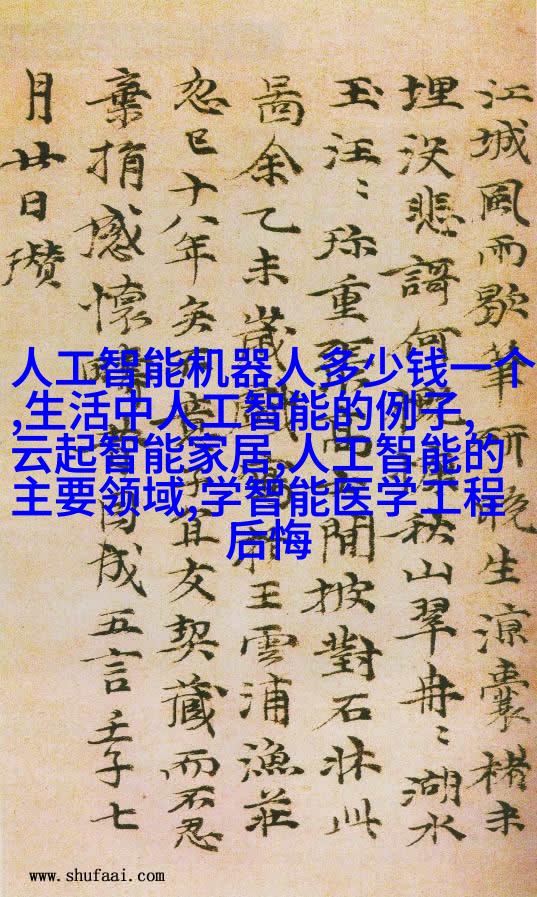 江城風雨歇筆研晚生涼囊楮未
埋没悲謌何秋山翠冉〻湖水
玉汪〻珎重閒披對石牀此
啚余乙未歲戲王雲浦漁莊
忽已十八年矣不子宜友契藏而不忍
棄捐感懷因成五言壬子七
月廿日瓚
人工智能机器人多少钱一个
,生活中人工智能的例子,
云起智能家居,人工智能的
主要领域,学智能医学工程
后悔
www.shufaai.com